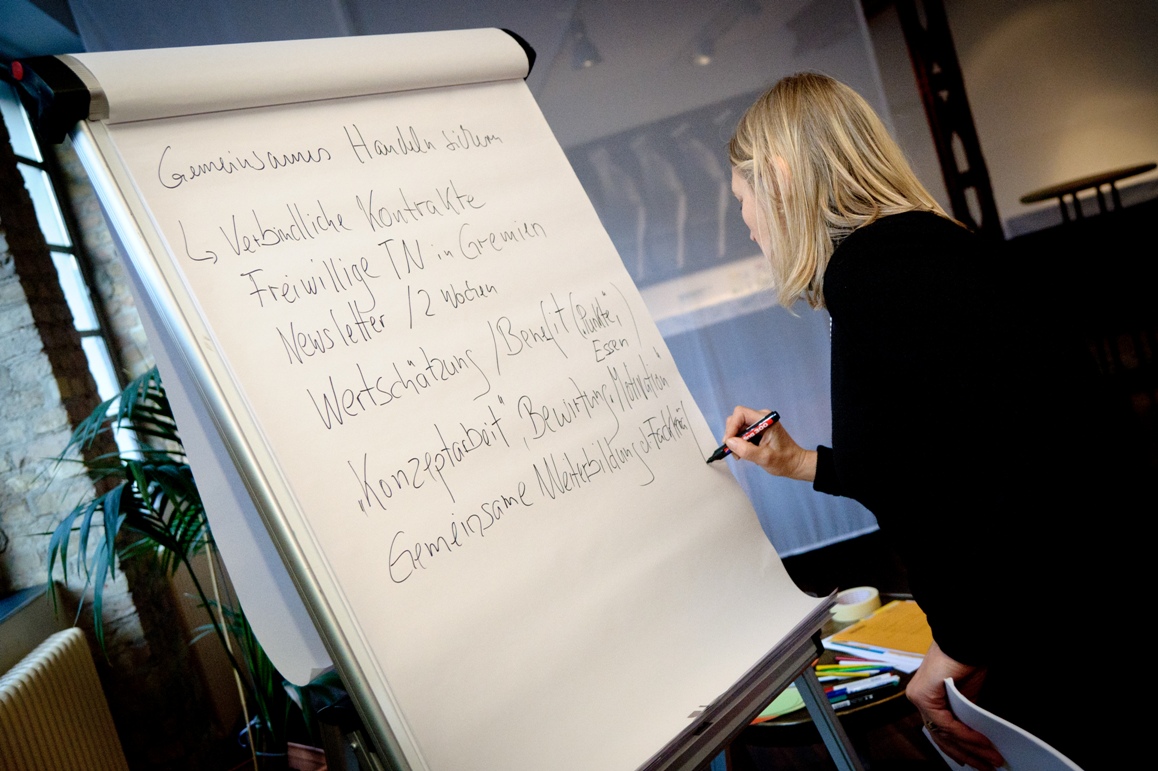 Gemeinsames Handeln sichern
Verbindliche Kontrakte
Freiwillige TN in Gremien
Newsletter /2 Wochen
Wertschätzung /Benefit (Punkte,
Essen)
„Konzeptarbeit", Bewirtung, Motivation
Gemeinsame Weiterbildung